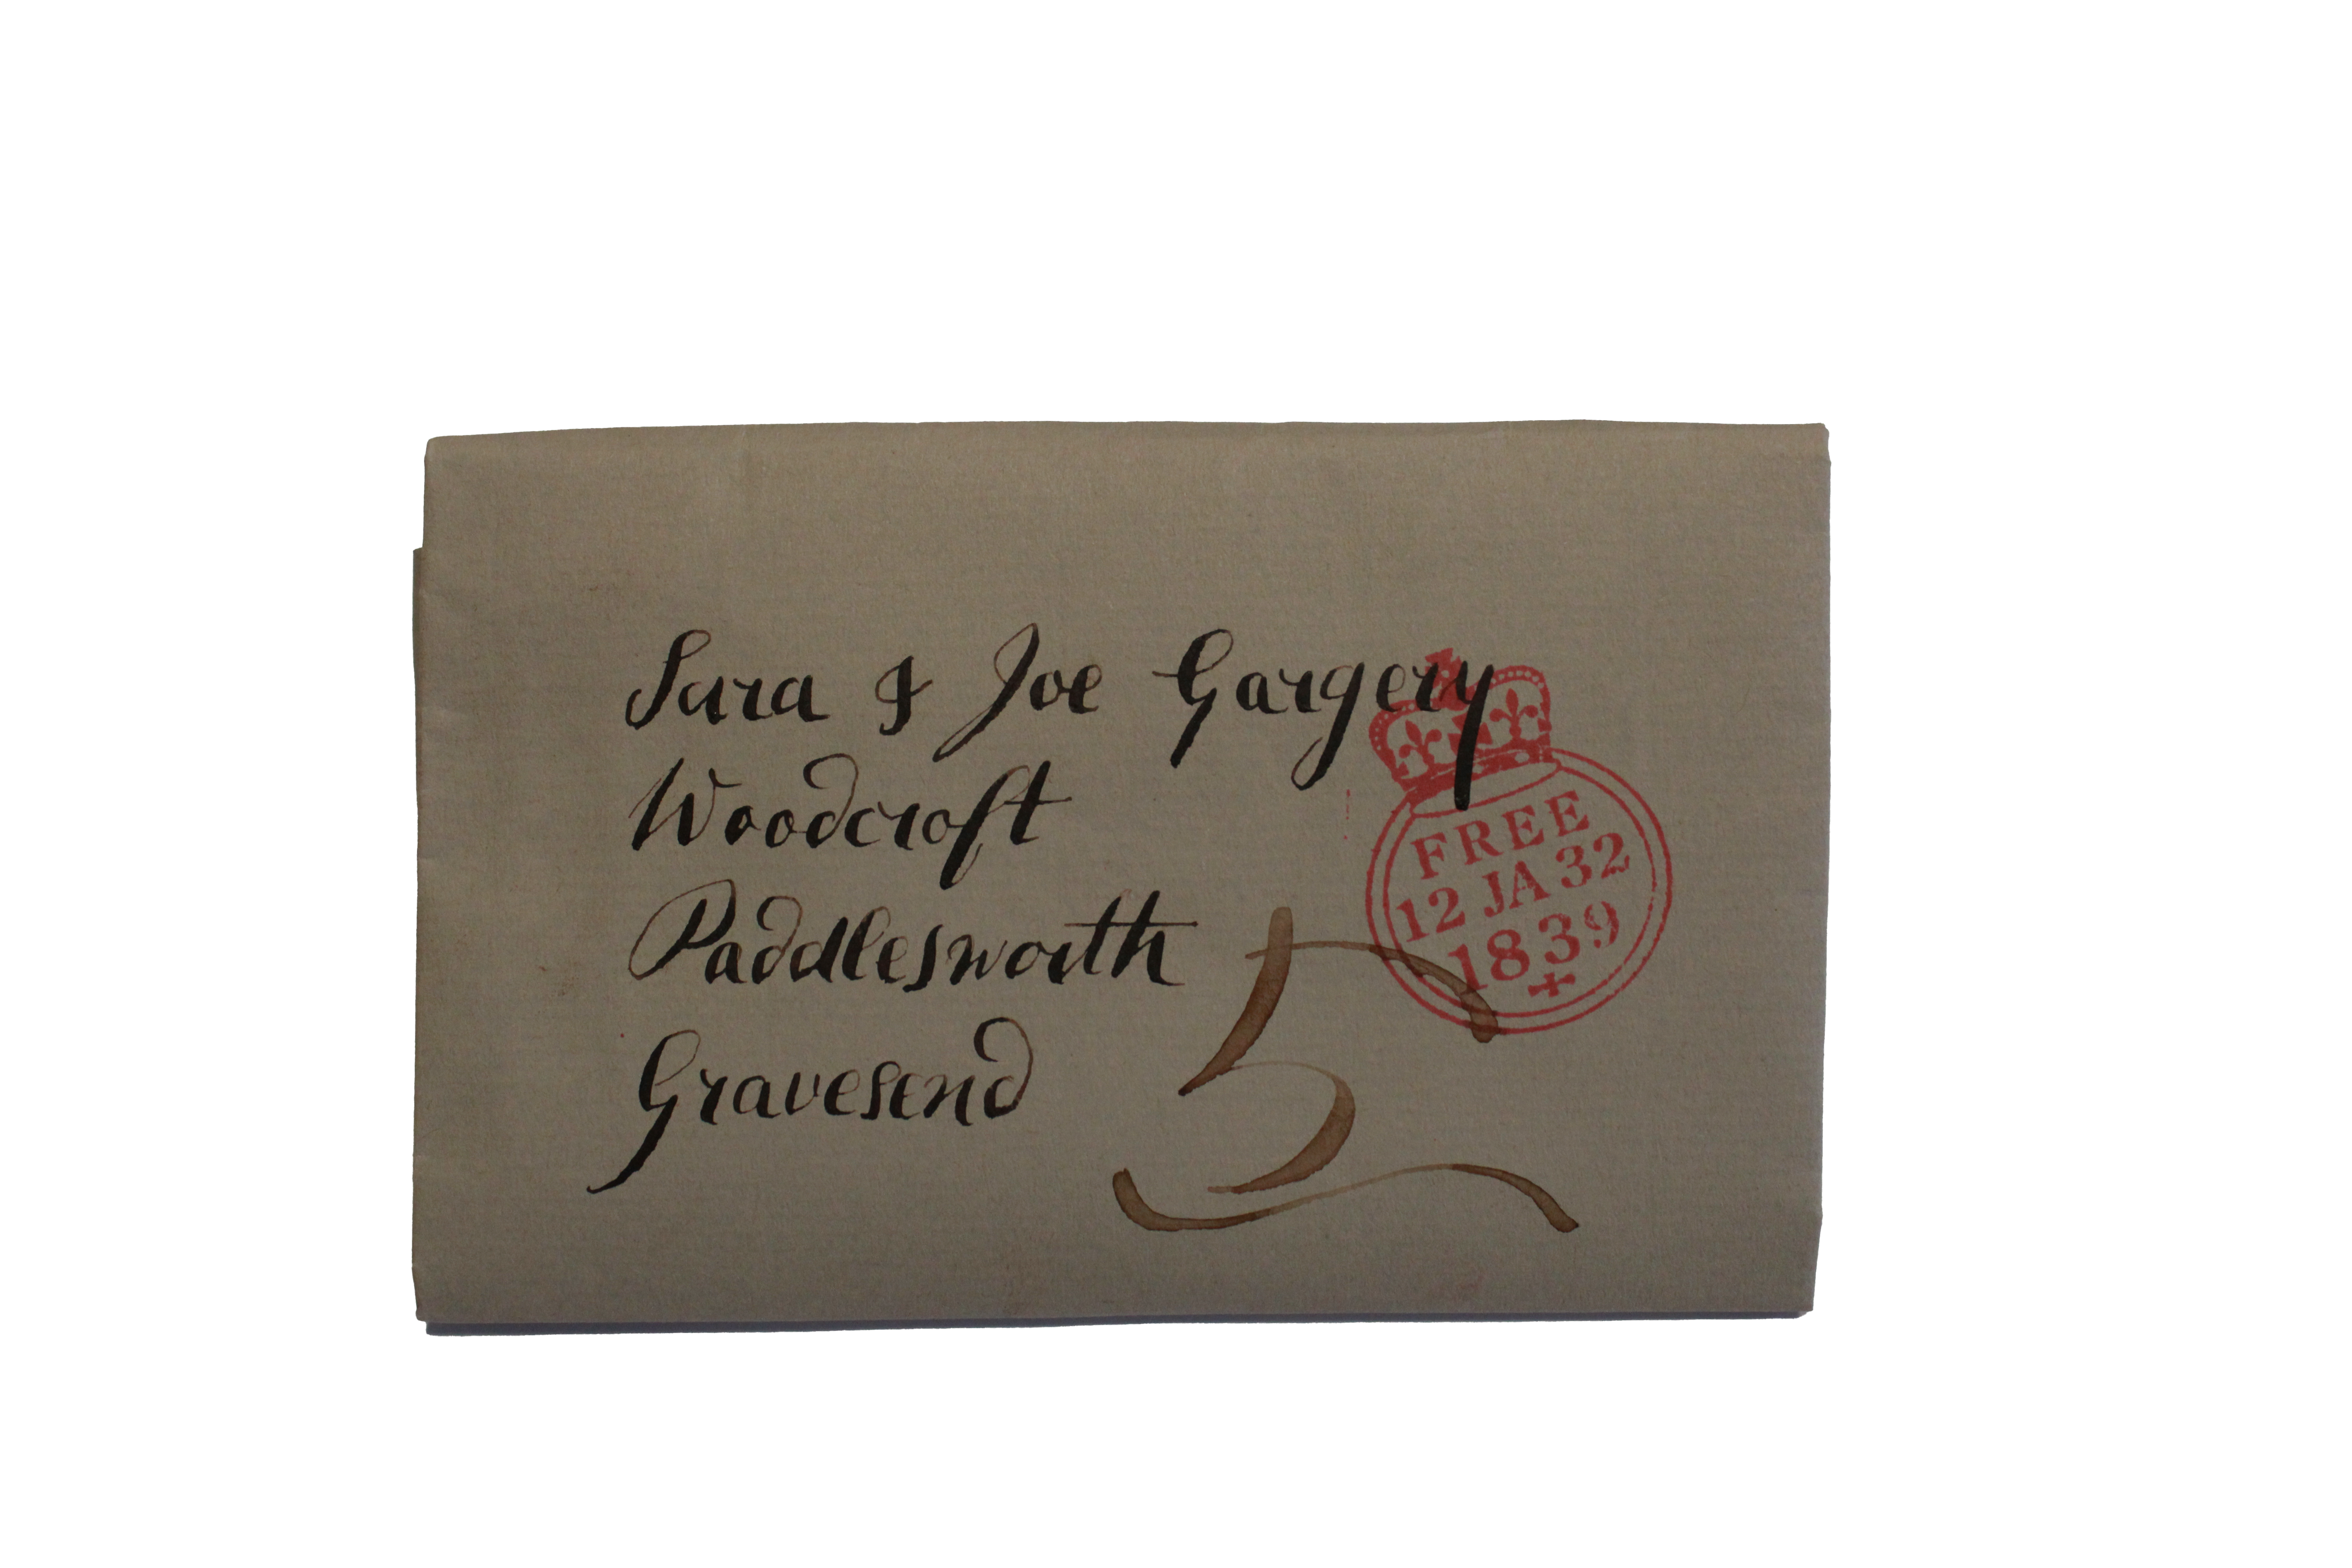 Sara & Joe Gargery
Woodcroft
Paddlesworth
Gravesend
5
FREE
12 JA 32
1839